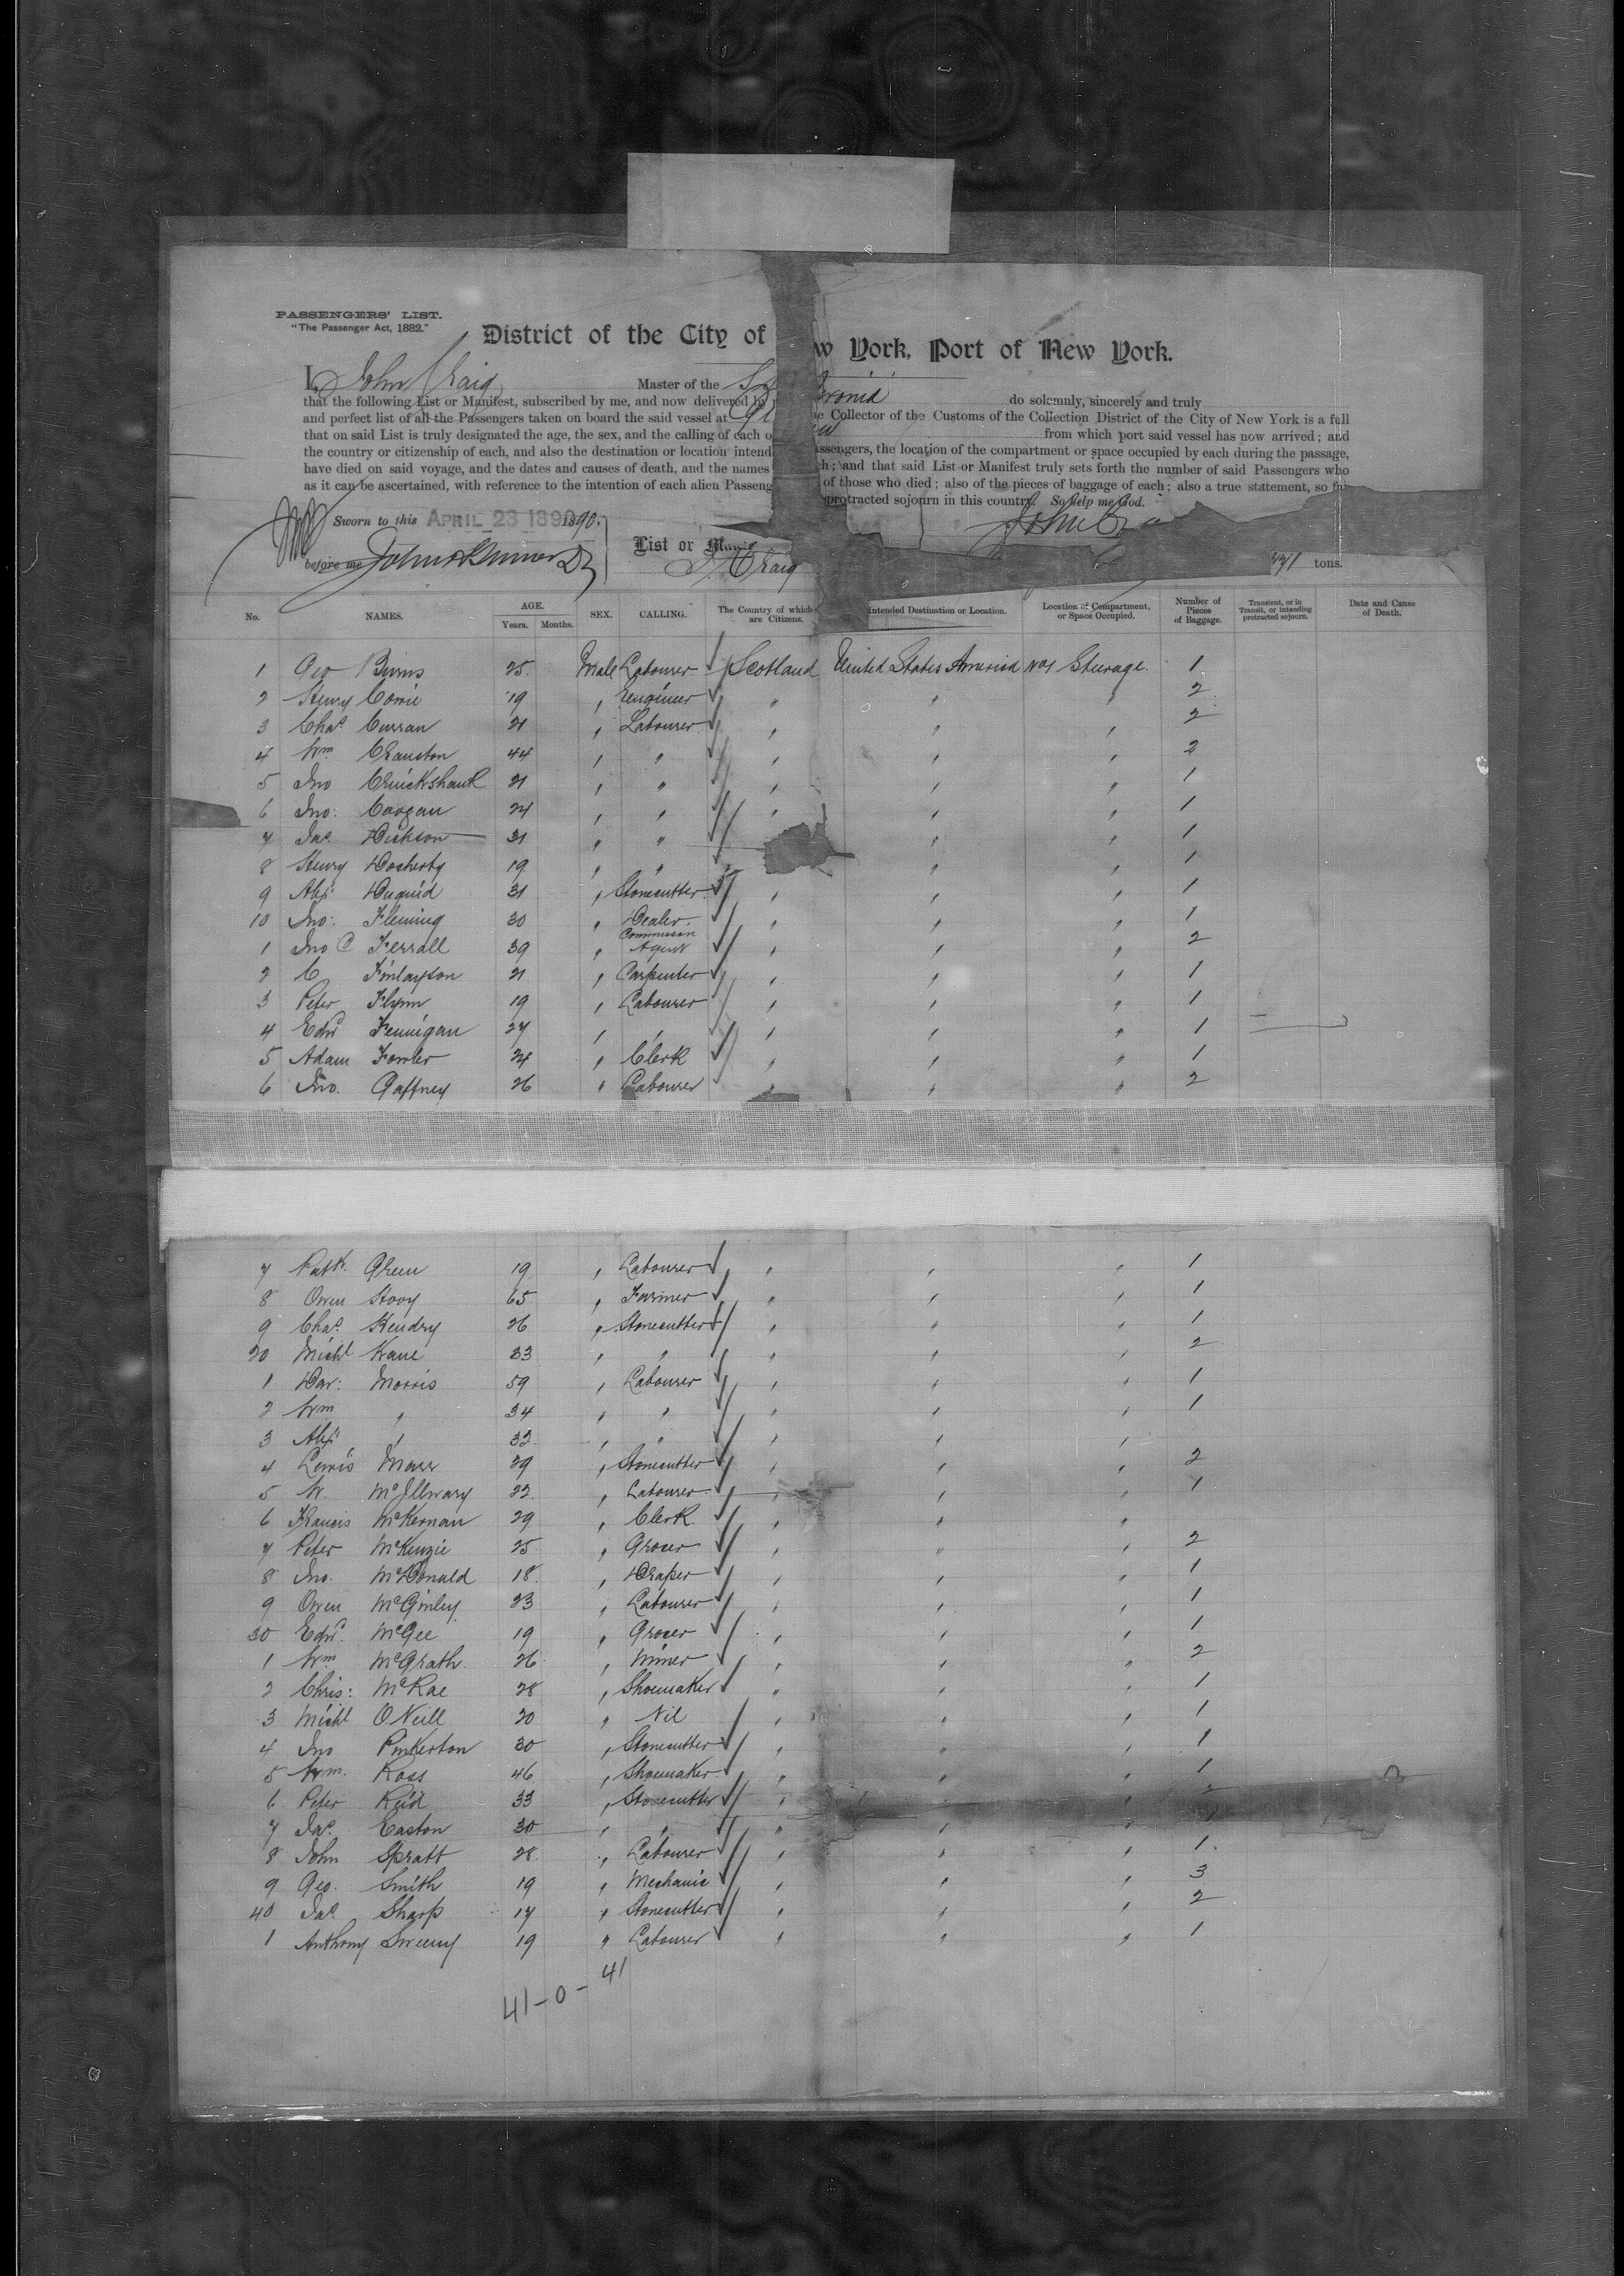 PASSENGERS' LIST.
"The Passenger Act, 1882."
District of the City of w York, Port of New York.
I, John Craig Master of the do solemnly, sincerely and truly
that the following List or Manifest, subscribed by me, and now delivered by e Collector of the Customs of the Collection District of the City of New York is a full
and perfect list of all the Passengers taken on board the said vessel at from which port said vessel has now arrived; and
that on said List is truly designated the age, the sex, and the calling of each o assengers, the location of the compartment or space occupied by each during the passage,
the country or citizenship of each, and also the destination or location intend h; and that said List or Manifest truly sets forth the number of said Passengers who
have died on said voyage, and the dates and causes of death, and the names of those who died; also of the pieces of baggage of each; also a true statement, so far
as it can be ascertained, with reference to the intention of each alien Passeng protracted sojourn in this country. So help me God.
Sworn to this APRIL 23 1890 1890. John
before me List or Manif
J. Craig tons.
No. NAMES. AGE. Years. Months. SEX. CALLING. The Country of which are Citizens. Intended Destination or Location. Location of Compartment, or Space Occupied. Number of Pieces of Baggage. Transient, or in Transit, or intending protracted sojourn. Date and Cause of Death.
1 Geo Binns 25 Male Labourer Scotland United States America No 1 Steerage 1
2 Henry Corrie 19 " Engineer " " " 2
3 Chas Curran 21 " Labourer " " " 2
4 Wm Cranston 44 " " " " " 2
5 Jno Cruickshank 21 " " " " " 1
6 Jno: Coogan 24 " " " " " 1
7 Jas Dickson 31 " " " " 1
8 Henry Docherty 19 " " " " " 1
9 Alexr Duguid 31 " Stonecutter " " " 1
10 Jno: Fleming 30 " Dealer " " " 1
1 Jno C Ferrall 39 " Commission Agent " " " 2
2 C Finlayson 21 " Carpenter " " " 1
3 Peter Flynn 19 " Labourer " " " 1
4 Edwd Finnigan 27 " " " " " 1
5 Adam Fowler 24 " Clerk " " " 1
6 Jno. Gaffney 26 " Labourer " " " 2
7 Patk. Green 19 " Labourer " " " 1
8 Owen 65 " Farmer " " " 1
9 Chas. Hendry 26 " Stonecutter " " " 1
20 Michl Kane 33 " " " " " 2
1 Dav: Morris 59 " Labourer " " " 1
2 Wm " 34 " " " " " 1
3 Alexr " 32 " " " " "
4 Lewis Marr 29 " Stonecutter " " " 2
5 W. McIlwary 22 " Labourer " " " 1
6 Francis McKernan 29 " Clerk " " "
7 Peter McKenzie 25 " Grocer " " " 2
8 Jno. McDonald 18 " Draper " " " 1
9 Owen McGinley 23 " Labourer " " " 1
30 Edwd. McGee 19 " Grocer " " " 1
1 Wm McGrath 26 " Miner " " " 2
2 Chris: McRae 28 " Shoemaker " " " 1
3 Michl O'Neill 20 " Nil " " " 1
4 Jno Pinkerton 30 " Stonecutter " " " 1
5 Wm. Ross 46 " Shoemaker " " " 1
6 Peter Reid 33 " Stonecutter " " " 2
7 Jas. Easton 30 " " " " " 1
8 John Spratt 28 " Labourer " " " 1
9 Geo. Smith 19 " Mechanic " " " 3
40 Jas. Sharp 17 " Stonecutter " " " 2
1 Anthony Sweeny 19 " Labourer " " " 1
41-0-41